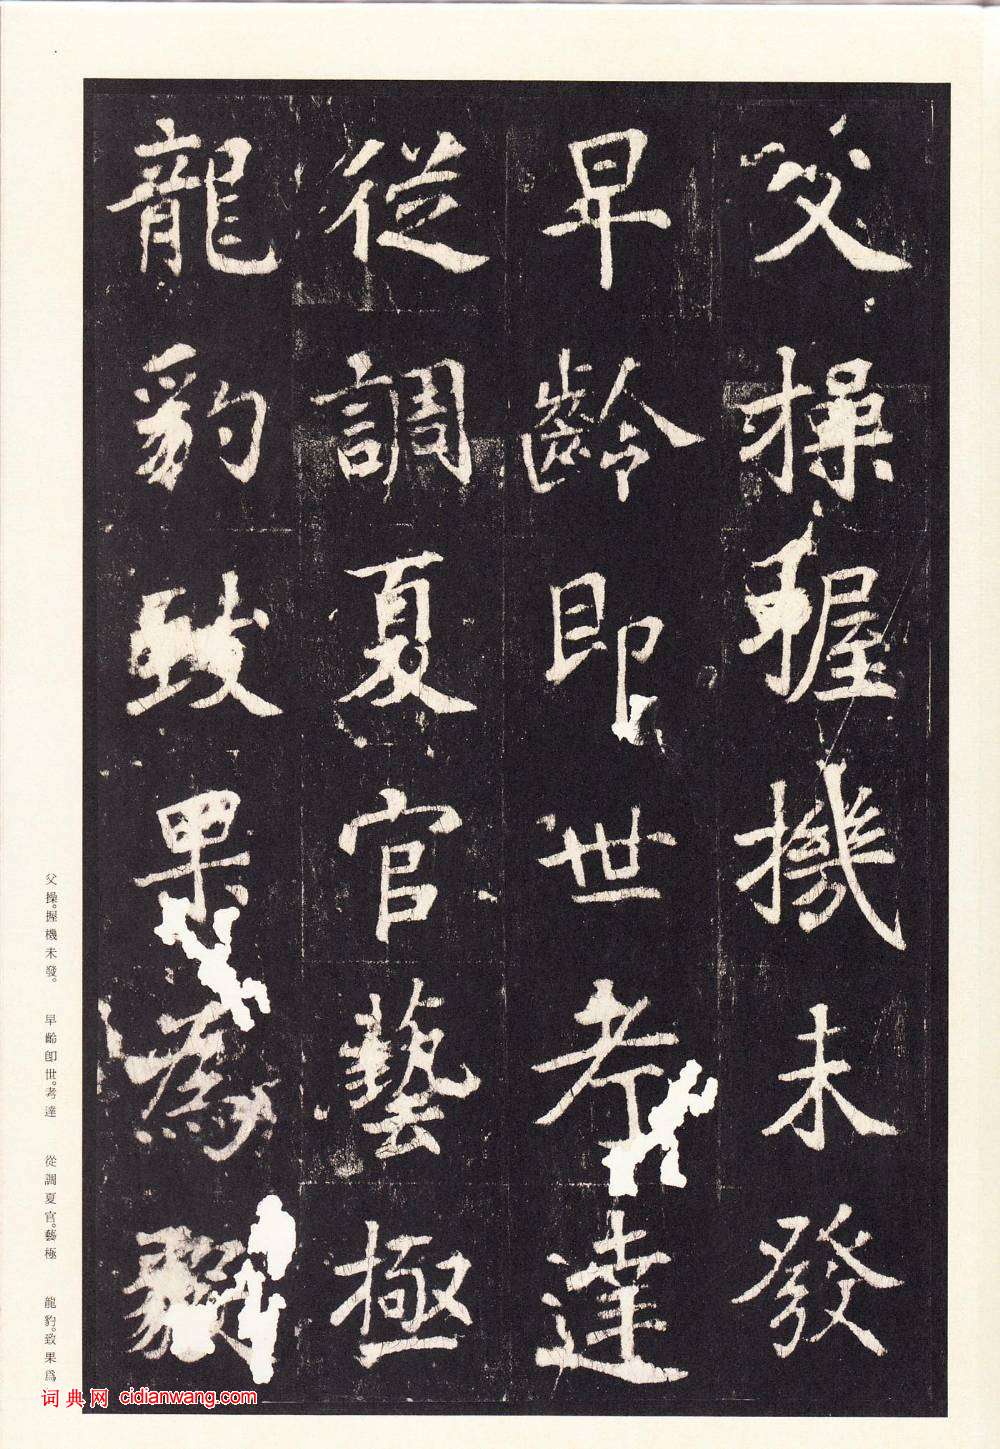 父操握機未發
早齡即世考達
從調夏官藝極
龍豹致果為
父操。握機未發。 早齡卽世。考達 從調夏官。藝極 龍豹。致果爲
词典网 cidianwang.com